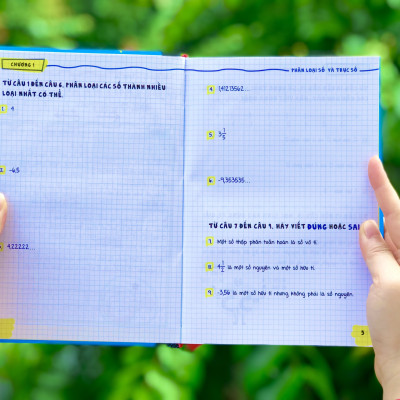 CHƯƠNG 1
TỪ CÂU 1 ĐẾN CÂU 6, PHÂN LOẠI CÁC SỐ THÀNH NHIỀU
LOẠI NHẤT CÓ THỂ.
1. 4
2. -6,5
4,22222...
PHÂN LOẠI SỐ VÀ TRỤC SỐ
4. 1,41213562...
5. 3 1/5
6. -9,353535...
TỪ CÂU 7 ĐẾN CÂU 9, HÃY VIẾT ĐÚNG HOẶC SAI
7. Một số thập phân tuần hoàn là số vô tỉ.
8. 4 1/2 là một số nguyên và một số hữu tỉ.
9. -3,56 là một số hữu tỉ nhưng không phải là số nguyên.
9